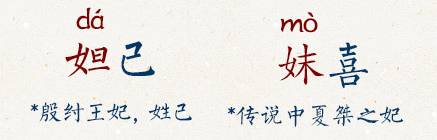 dá mò
妲己 妺喜
*殷纣王妃，姓己 *传说中夏桀之妃